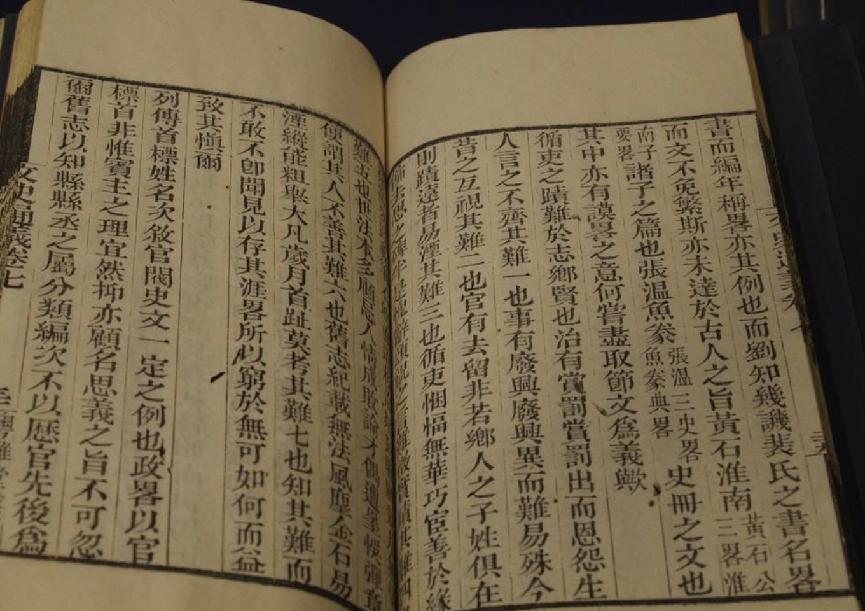 書而編年稱畧亦其例也而劉知幾譏裴氏之書名畧
而文不免繁斯亦未達於古人之旨黃石淮南黃石公三畧淮
南子要畧諸子之篇也張溫魚豢張溫三史畧魚豢典畧史冊之文也
其中亦有謨畧之意何嘗盡取節文爲義歟
循吏之蹟難於志鄉賢也治有賞罰賞罰出而恩怨生
人言之不齊其難一也事有廢興廢興異而難易殊今
昔之互視其難二也官有去留非若鄉人之子姓俱在
則蹟遠者易湮其難三也循吏悃愊無華巧宦善於緣
去思之碑半是
難五也世法本人情成敗論才偶遭彈章
便謂其人不善其難六也舊志紀載無法風塵金石易
湮縱能粗舉大凡歲月首趾莫考其難七也知其難而
不敢不卽聞見以存其涯畧所以窮於無可如何而益
致其愼爾
列傳首標姓名次敘官閥史文一定之例也政畧以官
標首非惟賓主之理宜然抑亦顧名思義之旨不可忽
爾舊志以知縣縣丞之屬分類編次不以歷官先後爲
文史通義卷七